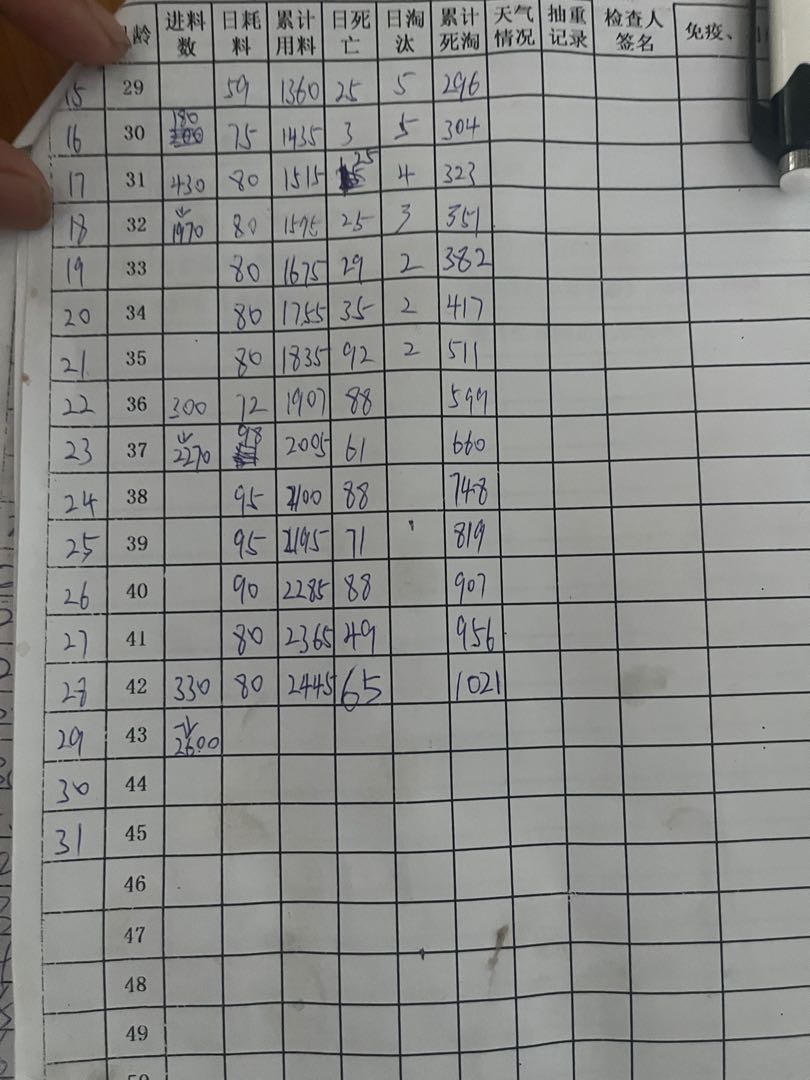 龄 进料数 日耗料 累计用料 日死亡 日淘汰 累计死淘 天气情况 抽重记录 检查人签名 免疫、
15 29 59 1360 25 5 296
16 30 180 75 1435 3 5 304
17 31 430 80 1515 25 4 323
18 32 ↓1970 80 1595 25 3 351
19 33 80 1675 29 2 382
20 34 80 1755 35 2 417
21 35 80 1835 92 2 511
22 36 300 72 1907 88 599
23 37 ↓2270 98 2005 61 660
24 38 95 2100 88 748
25 39 95 2195 71 819
26 40 90 2285 88 907
27 41 80 2365 49 956
28 42 330 80 2445 65 1021
29 43 ↓2600
30 44
31 45
46
47
48
49